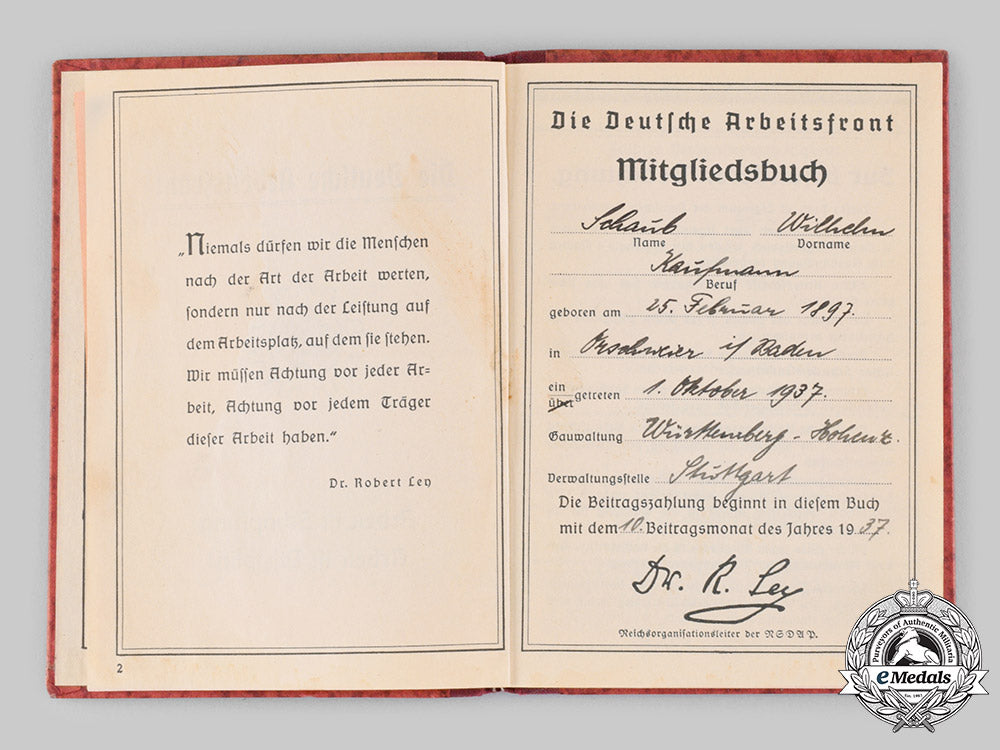 „Niemals dürfen wir die Menschen
nach der Art der Arbeit werten,
sondern nur nach der Leistung auf
dem Arbeitsplatz, auf dem sie stehen.
Wir müssen Achtung vor jeder Ar=
beit, Achtung vor jedem Träger
dieser Arbeit haben.“
Dr. Robert Ley
2
Die Deutsche Arbeitsfront
Mitgliedsbuch
Schaub Wilhelm
Name Vorname
Kaufmann
Beruf
geboren am 25. Februar 1897.
in Orschweier i/Baden
ein
über getreten 1. Oktober 1937.
Gauwaltung Württemberg - Hohenz.
Verwaltungsstelle Stuttgart
Die Beitragszahlung beginnt in diesem Buch
mit dem 10. Beitragsmonat des Jahres 1937.
Dr. R. Ley
Reichsorganisationsleiter der NSDAP.
Purveyors of Authentic Militaria
eMedals